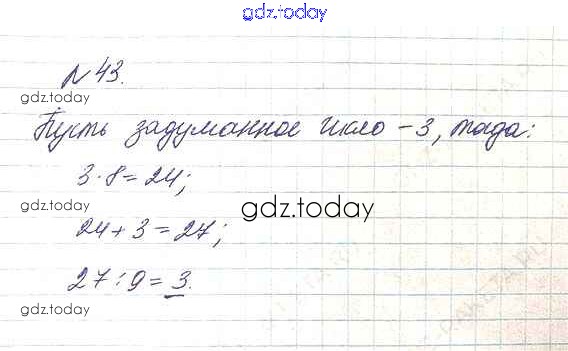 gdz.today
№43.
gdz.today
Пусть задуманное число – 3, тада:
3·8=24;
gdz.today
gdz.today
24+3=27;
27:9=3.
gdz.today